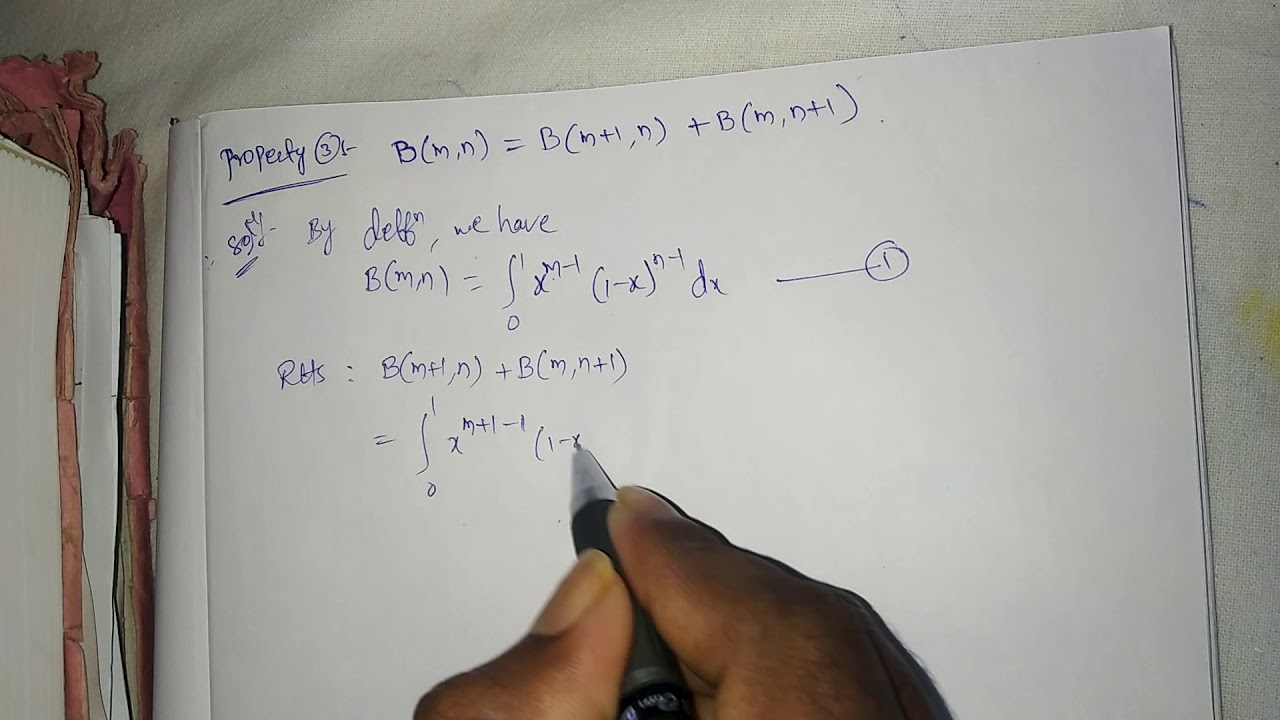 Property ③:- B(m,n) = B(m+1,n) + B(m,n+1).
Solⁿ:- By defⁿ, we have
B(m,n) = ∫₀¹ x^{m-1} (1-x)^{n-1} dx —— ①
RHS : B(m+1,n) + B(m,n+1)
= ∫₀¹ x^{m+1-1} (1-x